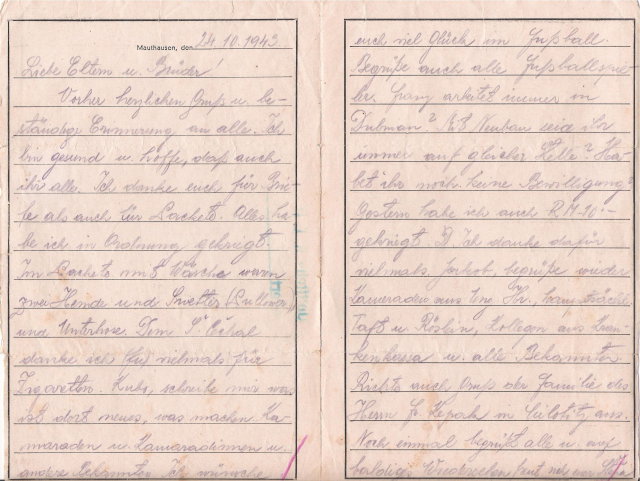 Mauthausen, den 24.10.1943
Liebe Eltern u. Brüder!
Vorher herzlichen Gruß u. be-
ständige Erinnerung, an alle. Ich
bin gesund u. hoffe, daß auch
ihr alle. Ich danke euch für Brie-
fe als auch für Packete. Alles ha-
be ich in Ordnung gekriegt.
Im Packete mit Wäsche waren
zwei Hemde und Swetter (Pullower)
und Unterhose. Dem
danke ich vielmals für
Zigaretten. schreibe mir was
ist dort neues, was machen Ka-
maraden u. Kamaradinnen u.
andere Bekannten. Ich wünsche
euch viel Glück im Fussball.
Begrüße auch alle Fussballspie-
ler. Franz arbeitet immer in
Neubau seid ihr
immer auf gleicher Stelle? Ha-
bet ihr noch keine Bewilligung?
Gestern habe ich auch RM 10.-
gekriegt. Ich danke dafür
vielmals. begrüße wieder
Kameraden aus
u. Kollegen aus Kran-
kenkassa u. alle Bekannten.
Richte auch Gruß der Familie des
Herrn in aus.
Noch einmal begrüßt alle u. auf
baldiges Wiedersehen